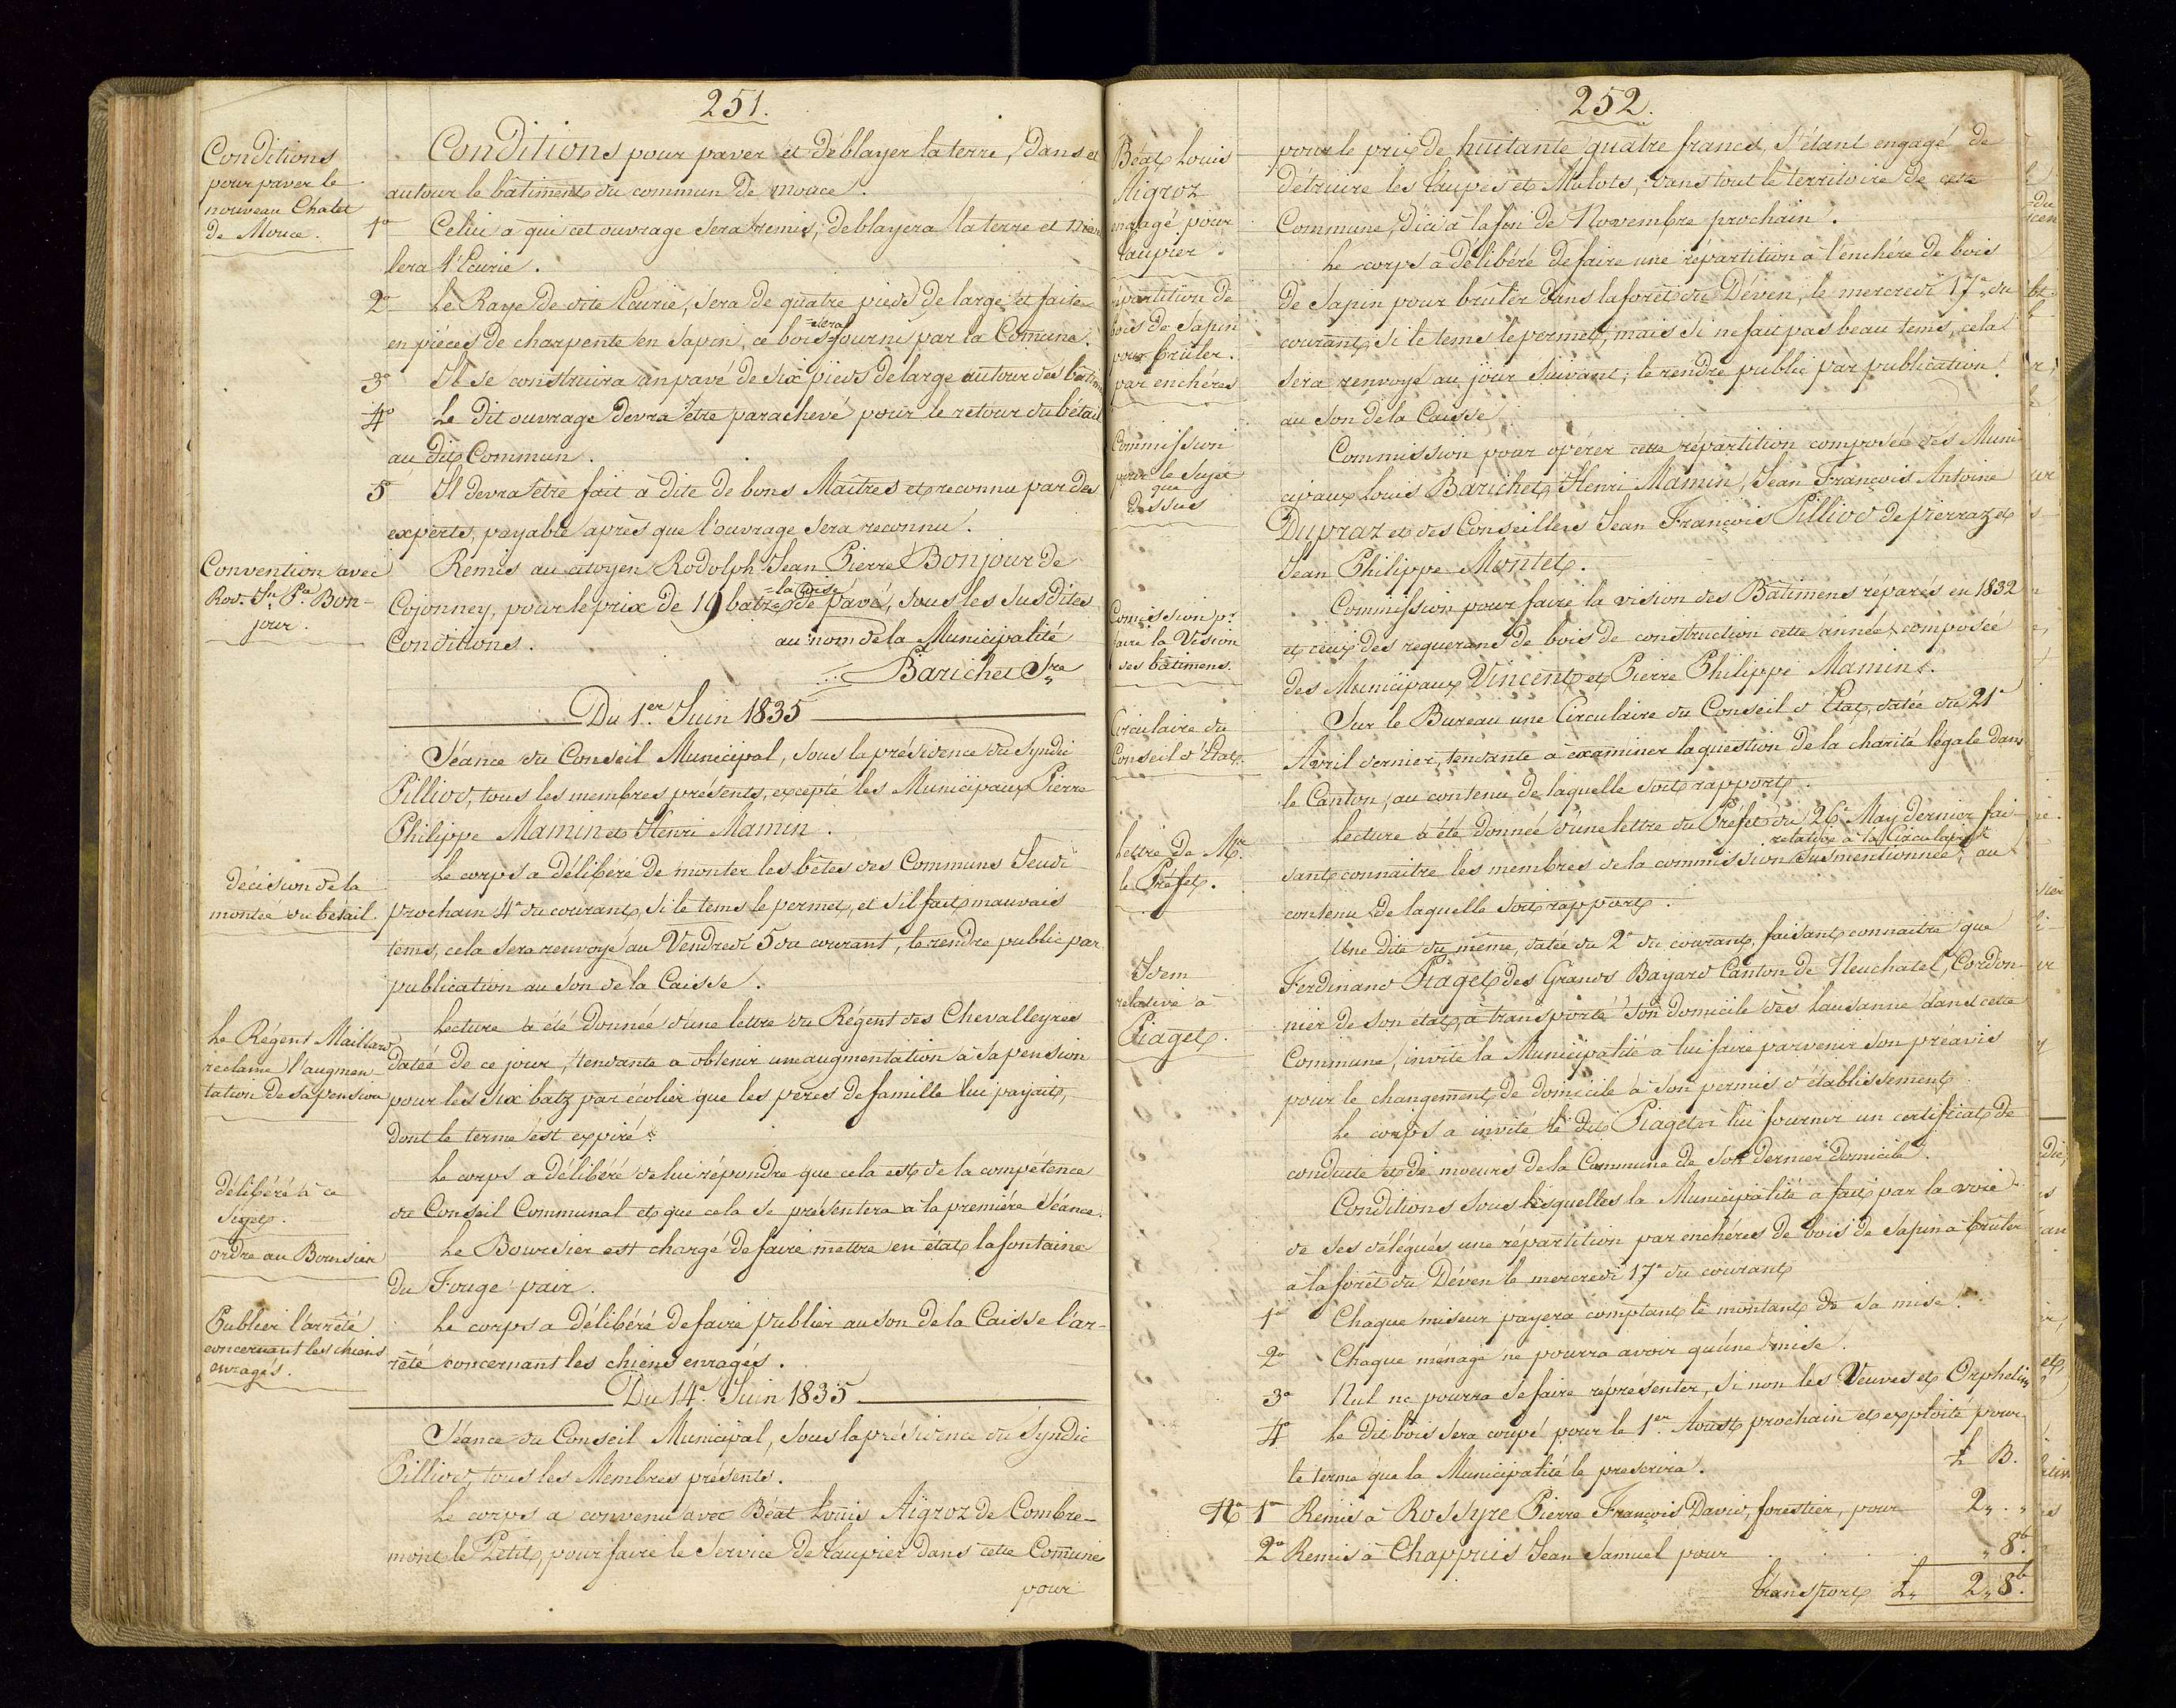 251.
Conditions
pour paver le
nouveau Chalet
de Mouce.
Conditions pour paver et déblayer la terre, dans et
autour le bâtiment du commun de mouce.
1° Celui à qui cet ouvrage sera remis, deblayera la terre et nive
lera l'Ecurie.
2° Le Raye de dite Ecurie, sera de quatre pieds de large et faite
en pièces de charpente en Sapin, ce bois sera fourni par la Comune.
3° Il se construira un pavé de six pieds de large autour des bâtim
4° Le dit ouvrage devra être parachevé pour le retour du bétail
au dit Commun.
5° Il devra être fait à dite de bons Maîtres et reconnu par des
experts, payable après que l'ouvrage sera reconnu.
Convention avec
Rod. Jn Pre Bon-
jour.
Remis au citoyen Rodolph Jean Pierre Bonjour de
Cojonney, pour le prix de 19 batz la toise de pavé, sous les susdites
Conditions. au nom de la Municipalité
Barichet Sre
Du 1.er Juin 1835
Séance du Conseil Municipal, sous la présidence du Syndic
Pilliod, tous les membres présents, excepté les Municipaux Pierre
Philippe Mamin et Henri Mamin.
décision de la
montée du bétail.
Le corps a délibéré de monter les bêtes des Communs Jeudi
prochain 4e du courant, si le tems le permet, et s'il fait mauvais
tems, cela sera renvoyé au Vendredi 5 du courant, le rendre public par
publication au son de la Caisse.
Le Régent Maillard
réclame l'augmen-
tation de sa pension
Lecture a été donnée d'une lettre du Régent des Chevalleyres
datée de ce jour, tendante a obtenir une augmentation à sa pension
pour les six batz par écolier que les peres de famille lui payait,
dont le terme est expiré.
délibéré à ce
Sujet.
Le corps a délibéré de lui répondre que cela est de la compétence
du Conseil Communal et que cela se présentera à la première Séance.
ordre au Boursier
Le Boursier est chargé de faire mettre en etat la fontaine
du Fouge pair.
Publier l'arrêté
concernant les chiens
enragés.
Le corps a délibéré de faire publier au son de la Caisse l'ar-
rêté concernant les chiens enragés.
Du 14e Juin 1835
Séance du Conseil Municipal, sous la présidence du Syndic
Pilliod, tous les Membres présents.
Le corps a convenu avec Béat Louis Aigroz de Combre-
mont le Petit, pour faire le Service de taupier dans cette Comune
pour
252.
Béat Louis
Aigroz
engagé pour
taupier.
pour le prix de huitante quatre francs, s'étant engagé de
détruire les taupes et Mulots, dans tout le territoire de cette
Commune, d'ici à la fin de Novembre prochain.
répartition de
bois de Sapin
pour brûler.
par enchéres
Le corps a délibéré de faire une répartition à l'enchére de bois
de Sapin pour brûler dans la forêt du Déven, le mercredi 17e du
courant, si le tems le permet, mais si ne fait pas beau tems, cela
sera renvoyé au jour suivant; le rendre public par publication
au son de la Caisse
Commission
pour le Sujet
que
dessus
Commission pour opérer cette répartition composée des Muni
cipaux Louis Barichet, Henri Mamin, Jean François Antoine
Dupraz et des Conseillers Jean François Pilliod de pierraz et
Jean Philippe Montet.
Comission pr
faire la Vision
des bâtimens.
Commission pour faire la vision des Bâtimens réparés en 1832
et ceux des requerans de bois de construction cette année, composée
des Municipaux Vincent et Pierre Philippe Mamin.
Circulaire du
Conseil d'Etat.
Sur le Bureau une Circulaire du Conseil d'Etat, datée du 21e
Avril dernier, tendante à examiner la question de la charité légale dans
le Canton, au contenu de laquelle soit rapport.
Lettre de Mr.
le Préfet.
Lecture a été donnée d'une lettre du Préfet du 26e May dernier fai-
sant connaitre les membres de la commission relative à la Circulaire susmentionnée, au
contenu de laquelle soit rapport.
Idem
relative à
Piaget.
Une dite du même, datée du 2e du courant, faisant connaitre que
Ferdinand Piaget des Grands Bayard Canton de Neuchatel, Cordon-
nier de son etat, a transporté son domicile dès Lausanne dans cette
Commune, invite la Municipalité à lui faire parvenir son préavis
pour le changement de domicile à son permis d'établissement
Le corps a invité le dit Piaget à lui fournir un certificat de
conduite et de moeurs de la Commune de son dernier domicile.
Conditions sous lesquelles la Municipalité a fait par la voie
de ses délégués une répartition par enchéres de bois de Sapin à brûler
à la forêt du Déven le mercredi 17e du courant
1° Chaque miseur payera comptant le montant de sa mise.
2° Chaque ménage ne pourra avoir qu'une mise.
3° Nul ne pourra se faire représenter, si non les Veuves et Orphelins
4° Le dit bois sera coupé pour le 1er Aoust prochain et exploité pour
le terme que la Municipalité le prescrira. £ B.
No 1° Remis à Rossyre Pierre François David, forestier, pour 2 " . "
2° Remis à Chappuis Jean Samuel pour " 8b.
transport £" 2 " 8b.